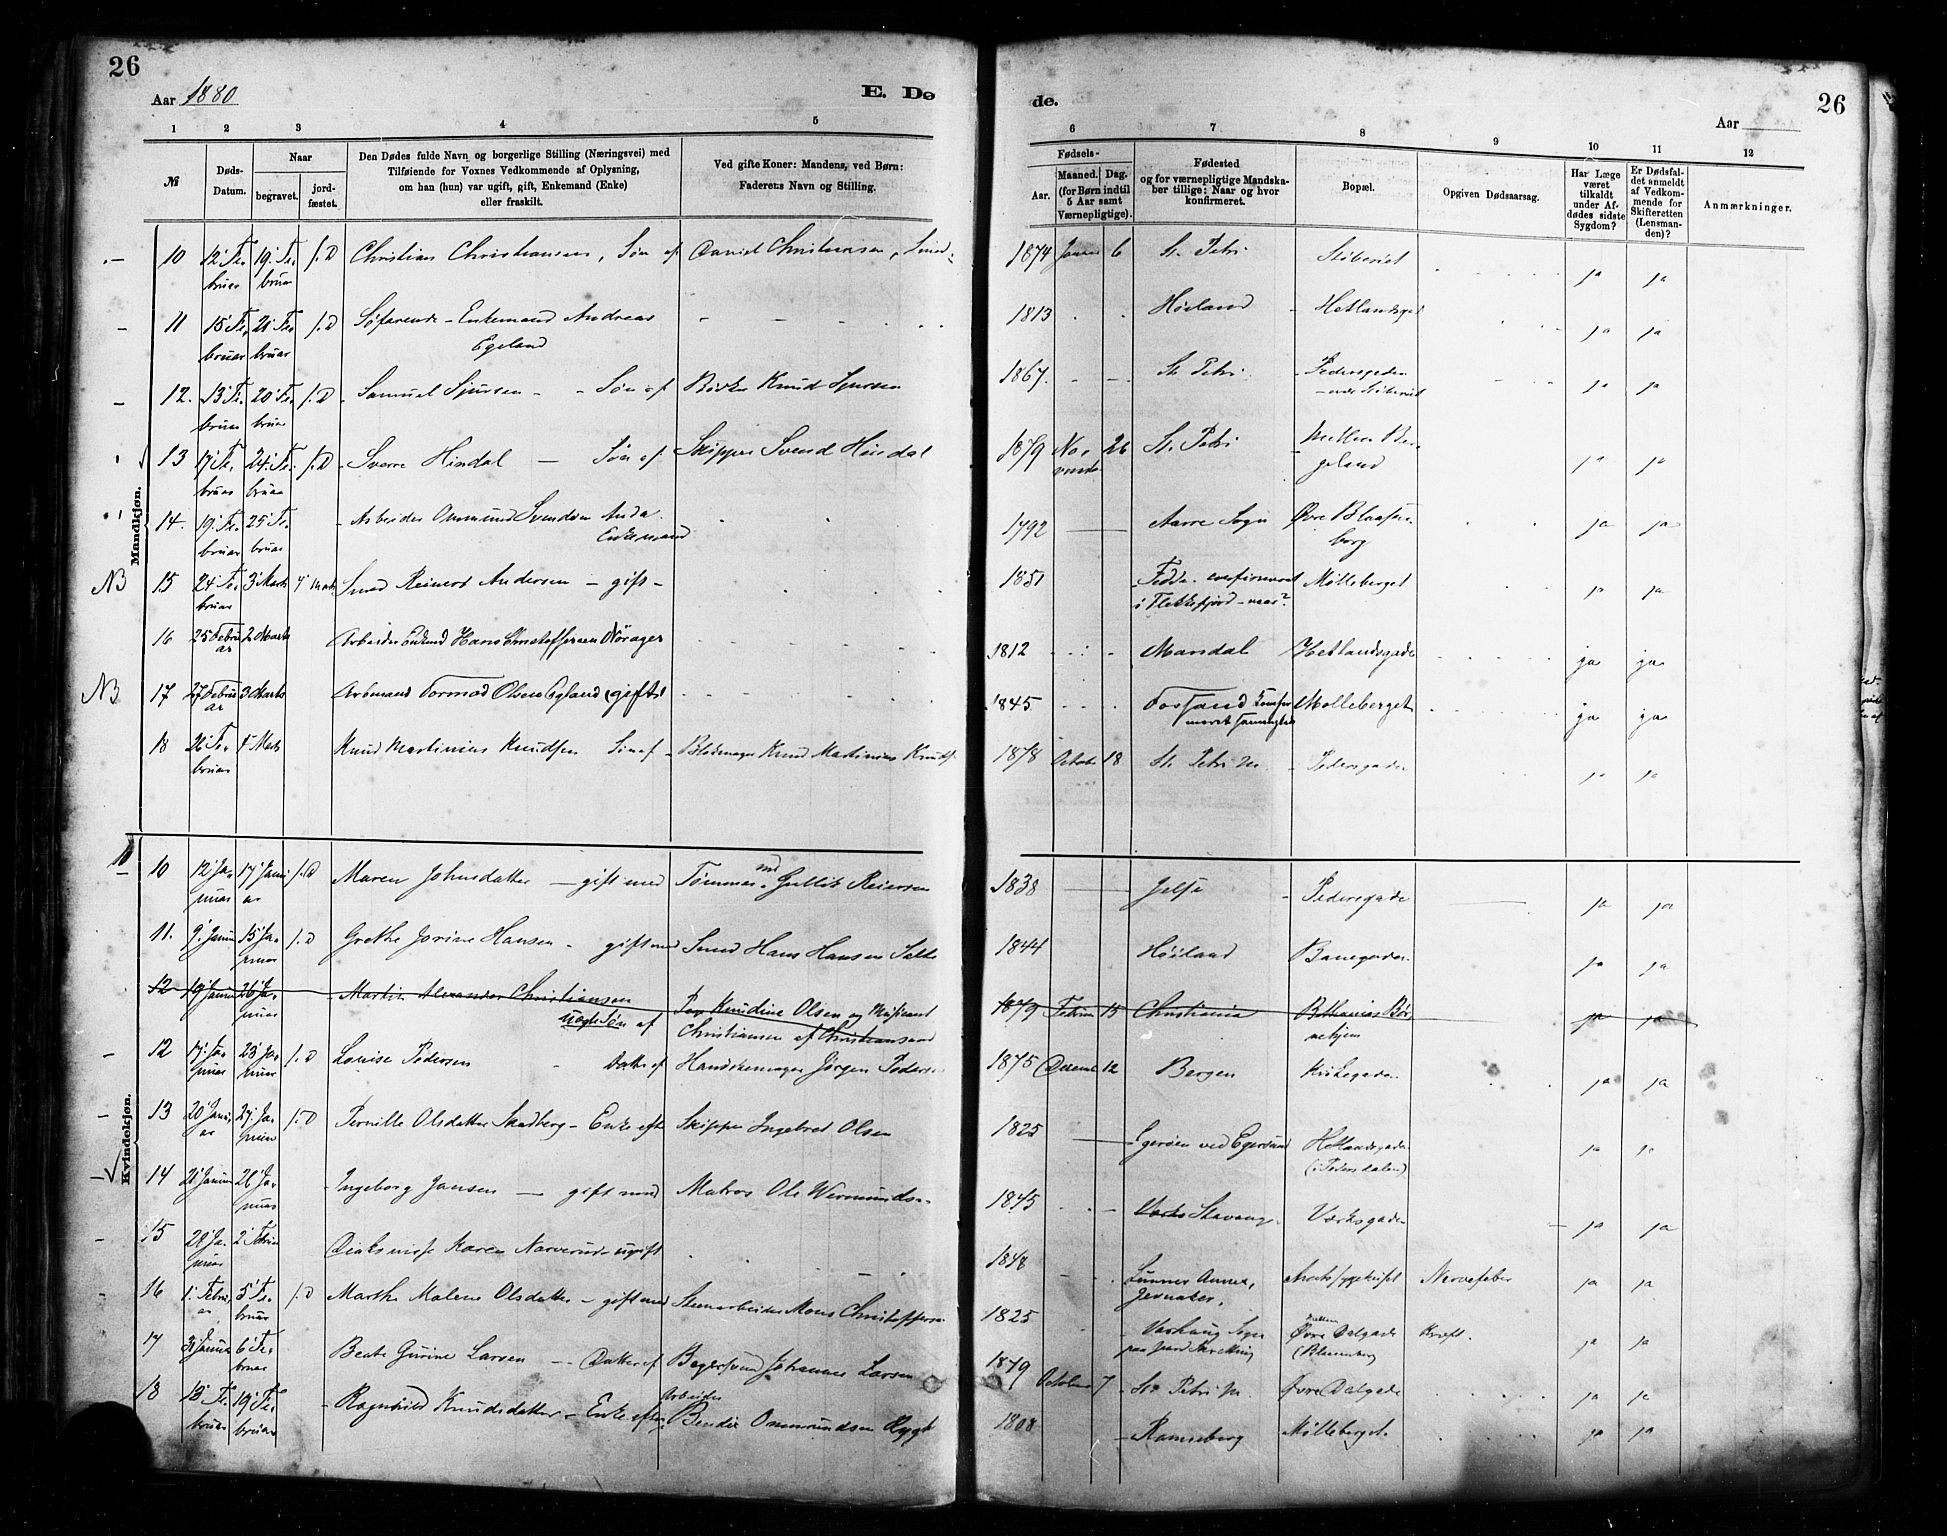 26
Aar 1880
E. Dø
de.
Aar
26
1 2 3 4 5 6 7 8 9 10 11 12
№
Døds-Datum.
Naar
begravet.
jord-fæstet.
Den Dødes fulde Navn og borgerlige Stilling (Næringsvei) med
Tilføiende for Voxnes Vedkommende af Oplysning,
om han (hun) var ugift, gift, Enkemand (Enke)
eller fraskilt.
Ved gifte Koner: Mandens, ved Børn:
Faderens Navn og Stilling.
Fødsels-
Aar.
Maaned. Dag.
(for Børn indtil
5 Aar samt
Værnepligtige).
Fødested
og for værnepligtige Mandska-
ber tillige: Naar og hvor
konfirmeret.
Bopæl.
Opgiven Dødsaarsag.
Har Læge
været
tilkaldt
under Af-
dødes sidste
Sygdom?
Er Dødsfal-
det anmeldt
af Vedkom-
mende for
Skifteretten
(Lensman-
den)?
Anmærkninger.
Mandkjøn.
10 12 Februar 19 Februar j.D Christian Christiansen, Søn af David Christensen, Smed 1874 6 St. Petri Støberiet ja ja
11 15 Februar 21 Februar j.D Søfarende - Enkemand Andreas
Egeland 1813 Høiland Hetlandsgd ja ja
12. 13 Februar 20 Februar j.D Samuel Sjursen - Søn af Knud Sjursen 1867 St. Petri Pedersgaden
ved Støberiet ja ja
13 17 Februar 24 Februar j.D Sverre Hindal - Søn af Skipper Svend Hindal 1879 November 26 St. Petri Mellem Bergeland ja ja
14. 19 Februar 25 Februar Arbeider Ommund Svendsen Anda
Enkemand 1792 Aarre Sogn Øvre Blaasenborg ja ja
NB 15 24 Februar 3 Marts Smed Reinert Andersen - gift - 1851 Fedde - confirmeret
i Flekkefjord - naar? Mølleberget ja ja
16 25 Februar 2 Marts Arbeider Enkemd Hans Christoffersen Nørager 1812 Mandal Hetlandsgade ja ja
NB 17 27 Februar 3 Marts Arbmand Tormod Olsen Egland (gift) 1845 Fossand Mølleberget ja ja
18 26 Februar 4 Marts Knud Martinius Knudsen Søn af Knud Martinius Knuds 1878 October 18 St. Petri Mr Pedersgade ja ja
Kvindekjøn.
10 12 Januar 17 Januar j.D Maren Johnsdatter - gift med Tømmermd Gullik Reiersen 1838 Jelse Pedersgade ja ja
11. 9 Januar 15 Januar j.D Grethe Jorine Hansen - gift med Smed Hans Hansen 1844 Høiland Banegaden ja ja
12 19 Januar 26 Januar Martin Alexander Christiansen
uægte Søn af Knudine Olsen og Musikant
Christiansen af Christianssand 1879 Februar 15 Christiania Bethanias Børnehjem ja ja
12 17 Januar 23 Januar j.D Lovise Pedersen Datter af Handskemager Jørgen Pedersen 1875 Decemb 12 Bergen Kirkegaden ja ja
13 20 Januar 27 Januar j.D Pernille Olsdatter Skadberg - Enke efter Skipper Ingebret Olsen 1825 Egerøen ved Egersund Hetlandsgaden
ja ja
14 21 Januar 26 Januar Ingeborg Jansen - gift med Matros Ole Wermunds- 1845 Stavang. Værksgaden ja ja
15 28 Januar 2 Februar Diakonisse Karen Narverud - ugift 1848 Lunner Annex,
Jevnaker. Amtssygehuset Nervefeber ja ja
16 1 Februar 5 Februar j.D Marthe Malene Olsdatter - gift med Stenarbeider Mons Christoffersen 1825 Varhaug Sogn
paa Jæderen Øvre Dalgade Kræft. ja ja
17 31 Januar 6 Februar Beate Gurine Larsen - Datter af Bagersvend Johannes Larsen 1879 October 7 St. Petri M. Øvre Dalgade ja ja
18 13 Februar 19 Februar Ragnhild Knudsdatter - Enke efter Arbeider
Bendix Ommundsen Rygh 1808 Ramseberg Mølleberget ja ja